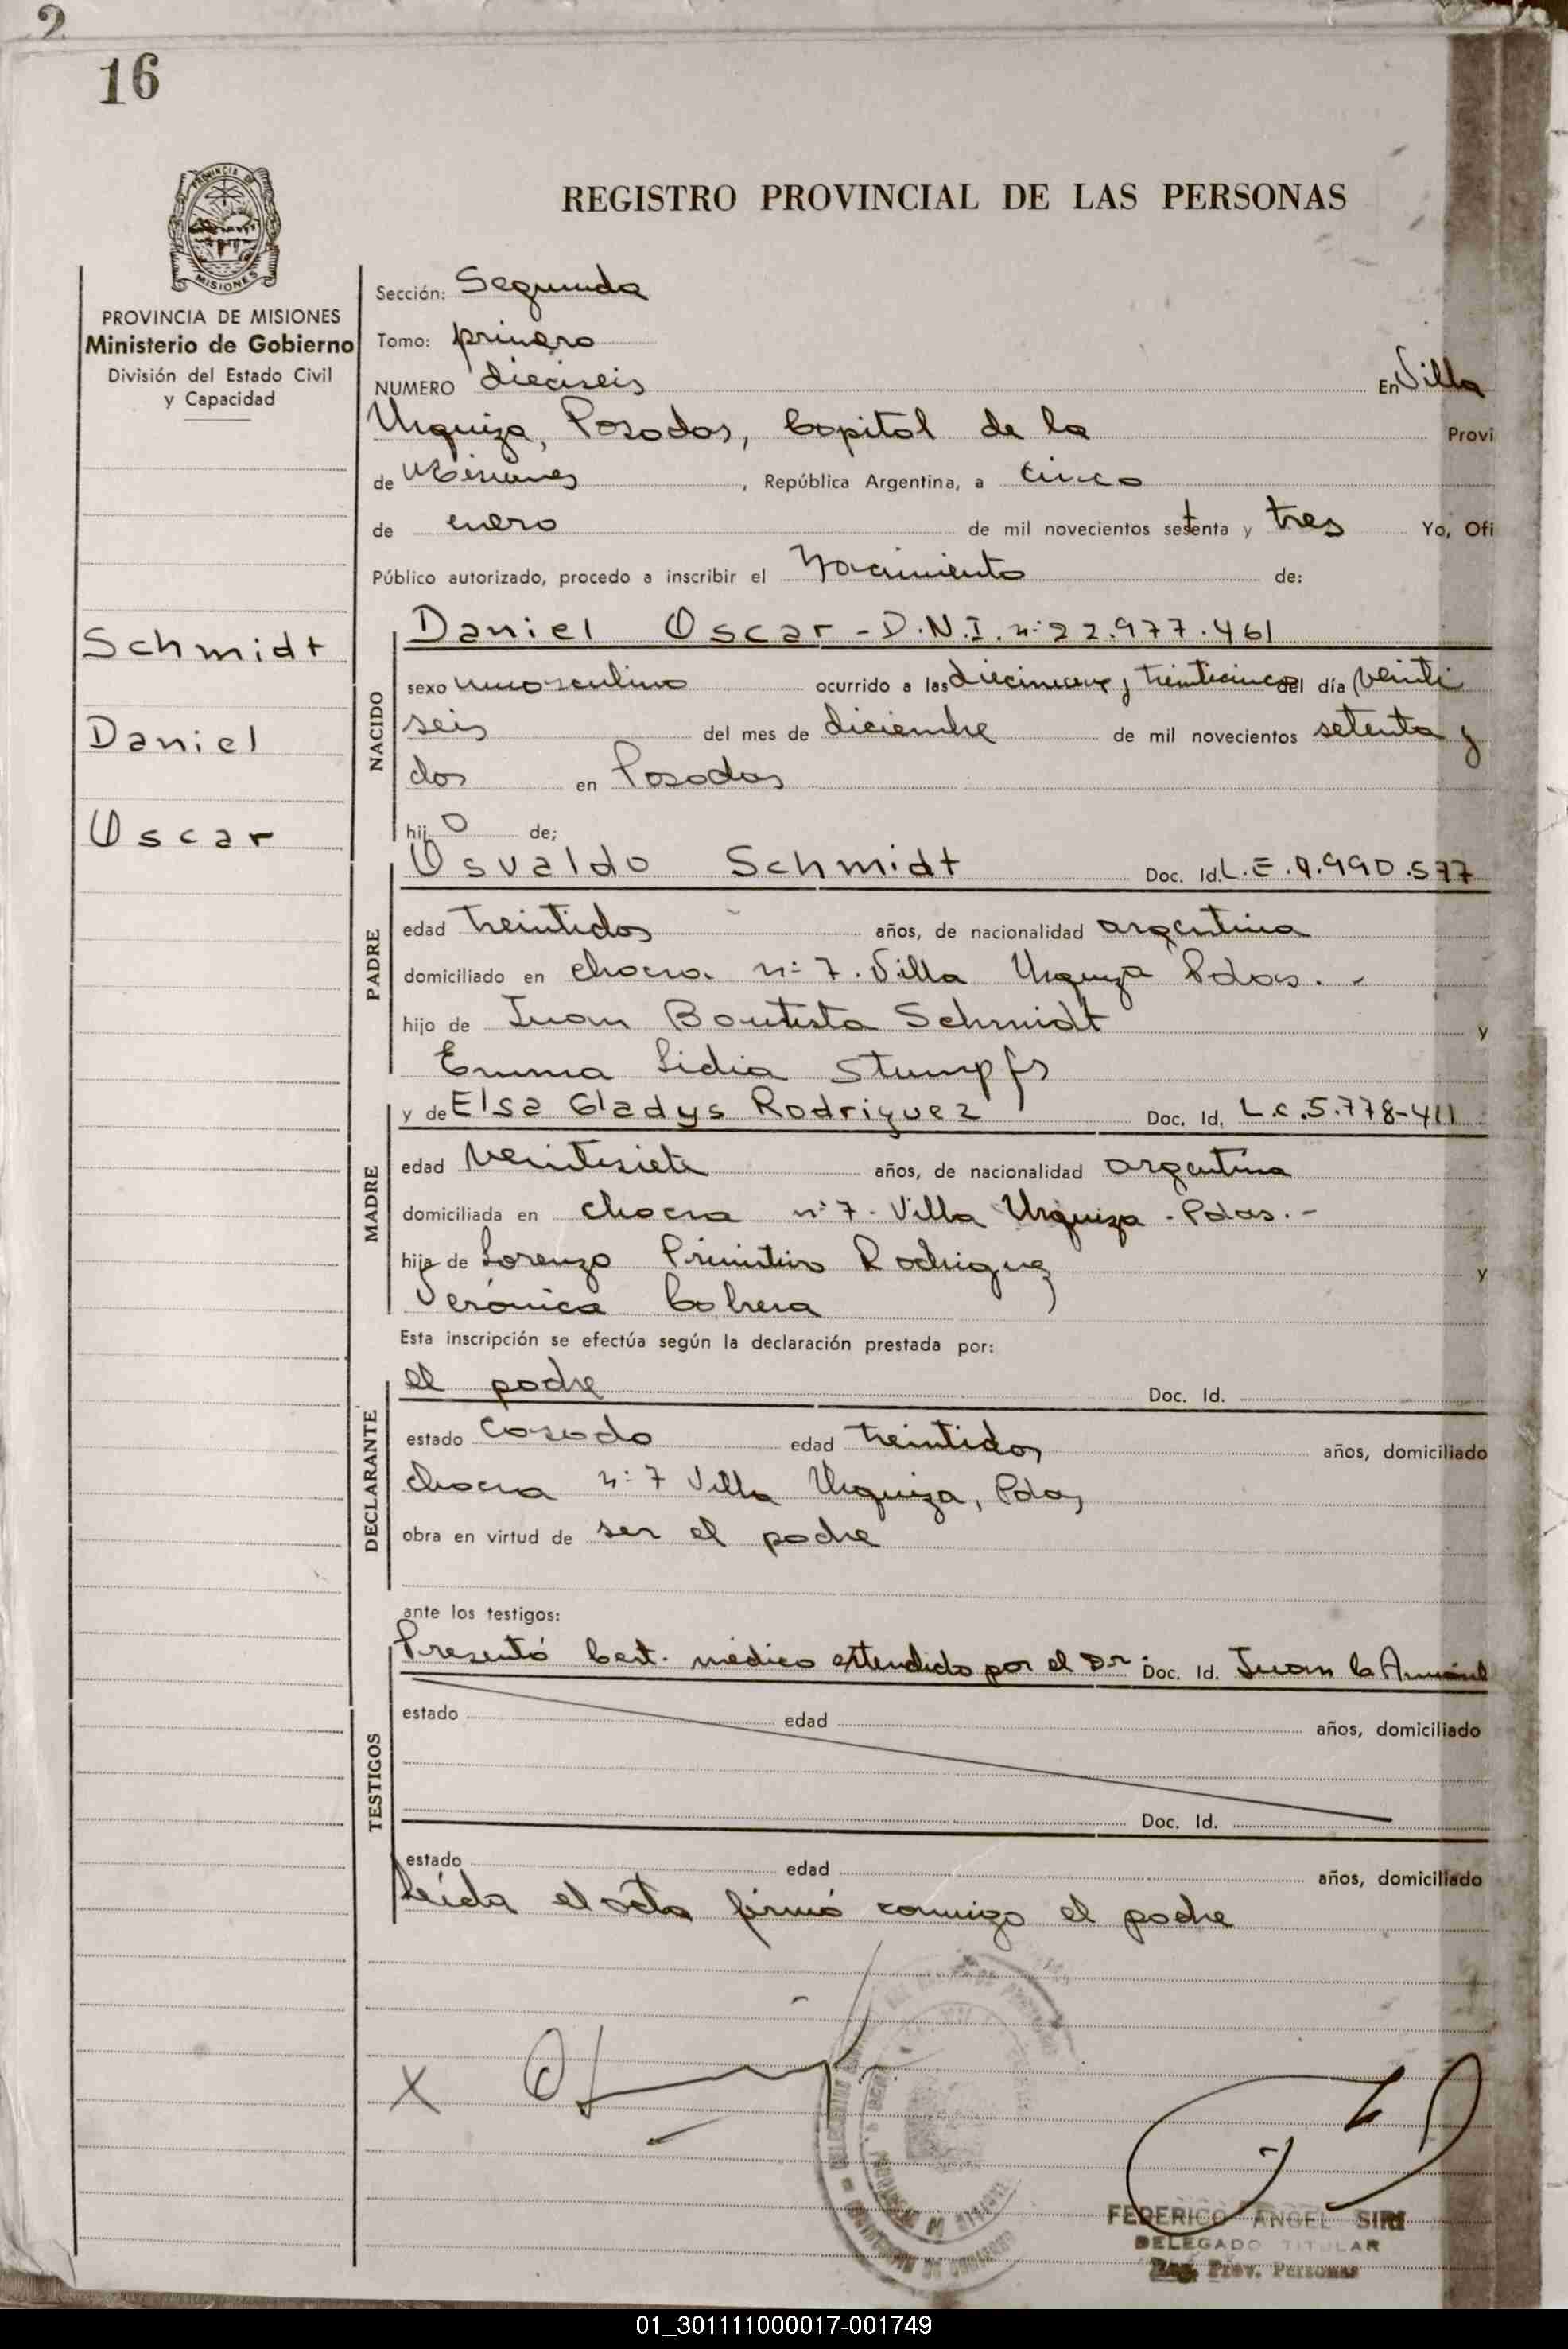 2
16
PROVINCIA DE
MISIONES
PROVINCIA DE MISIONES
Ministerio de Gobierno
División del Estado Civil
y Capacidad
Schmidt
Daniel
Oscar
REGISTRO PROVINCIAL DE LAS PERSONAS
Sección: Segunda
Tomo: primero
NUMERO dieciseis En Villa
Urquiza, Posadas, Capital de la Provi
de Misiones, República Argentina, a cinco
de enero de mil novecientos setenta y tres Yo, Ofi
Público autorizado, procedo a inscribir el Nacimiento de:
NACIDO
Daniel Oscar - D.N.I. nº 22.977.461
sexo masculino ocurrido a las diecinueve y treinticinco del día veinti
seis del mes de diciembre de mil novecientos setenta y
dos en Posadas
hijo de;
PADRE
Osvaldo Schmidt Doc. Id. L.E. 7.990.577
edad treintidos años, de nacionalidad argentina
domiciliado en chacra nº 7. Villa Urquiza Pdas. -
hijo de Juan Bautista Schmidt y
Emma Lidia Stumpfs
MADRE
y de Elsa Gladys Rodriguez Doc. Id. L.C. 5.778-411
edad veintisiete años, de nacionalidad argentina
domiciliada en chacra nº 7 - Villa Urquiza - Pdas. -
hija de Lorenzo Primitivo Rodriguez y
Verónica Cabrera
Esta inscripción se efectúa según la declaración prestada por:
DECLARANTE
el padre Doc. Id.
estado casado edad treintidos años, domiciliado
chacra nº 7 Villa Urquiza, Pdas
obra en virtud de ser el padre
ante los testigos:
TESTIGOS
Presentó Cert. médico extendido por el Dr. Doc. Id. Juan C
estado edad años, domiciliado
Doc. Id.
estado edad años, domiciliado
Leída el acta firmó conmigo el padre
X
FEDERICO ANGEL SIRI
DELEGADO TITULAR
Reg. Prov. Personas
01_301111000017-001749